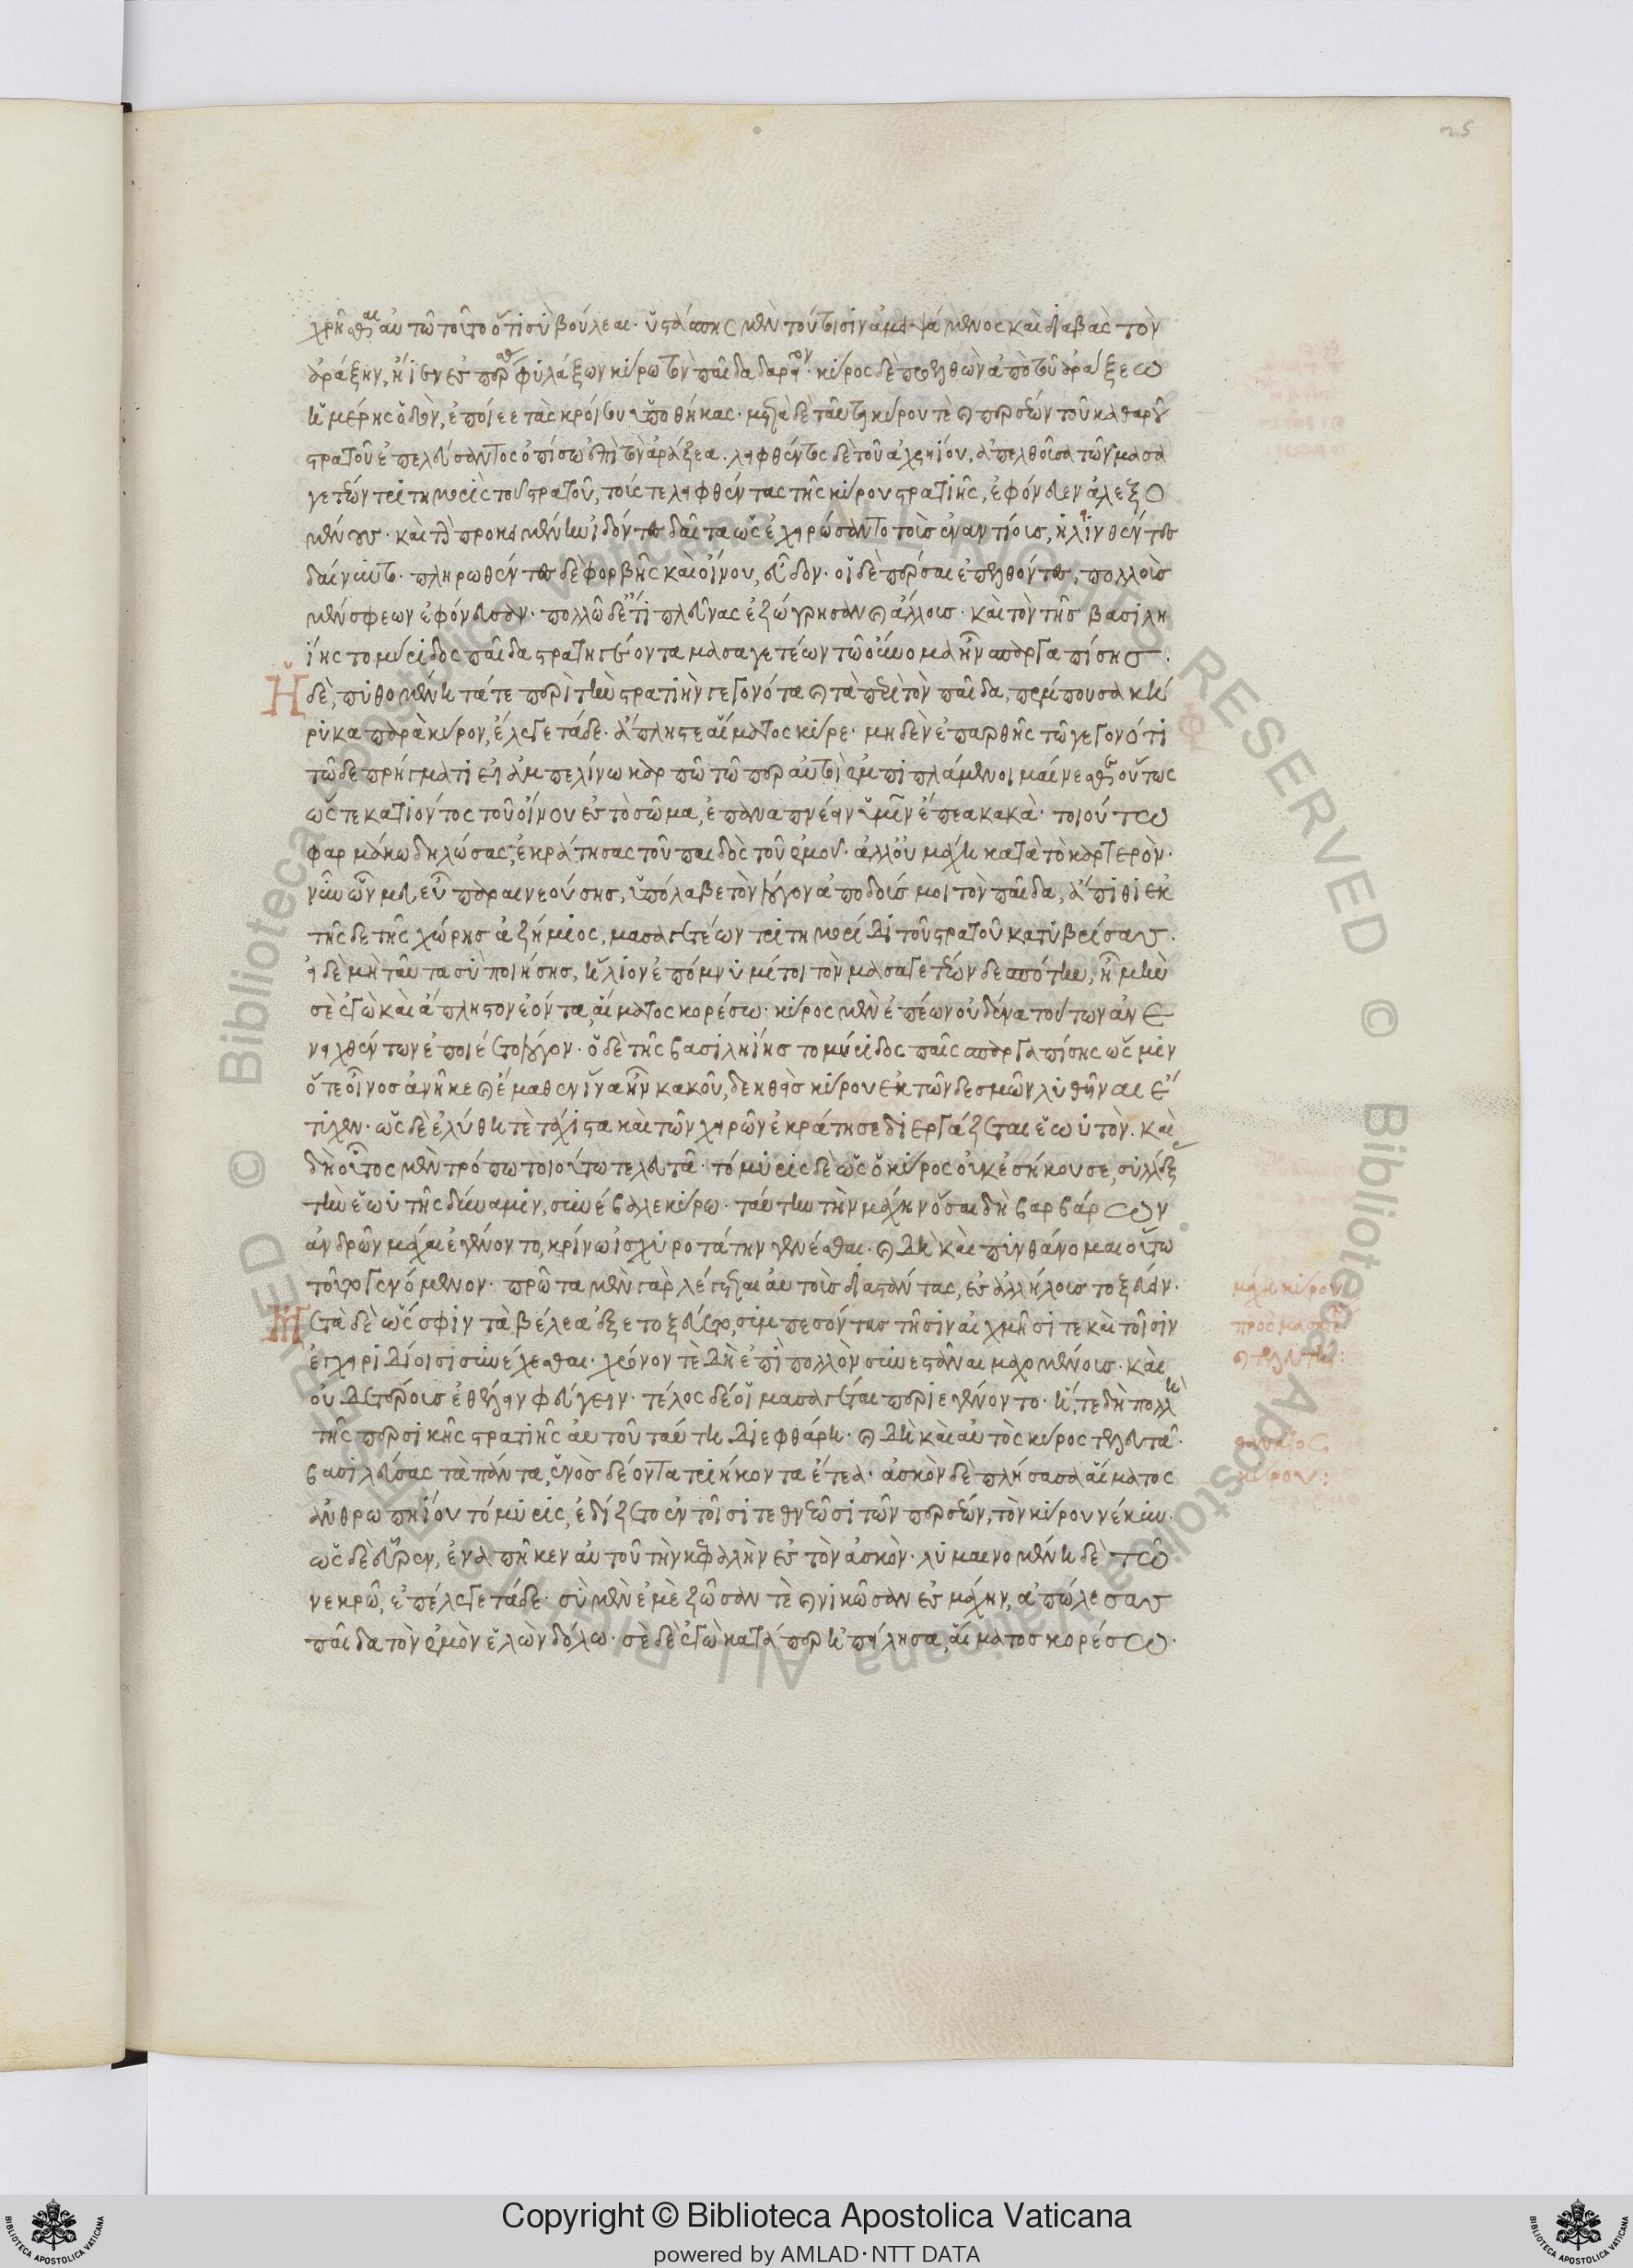 25
χρῆσθαι αὐτῶ τοῦτο ὅτι σὺ βούλεαι· ὑστάσπης μὲν τούτοισιν ἀμειψάμενος καὶ διαβὰς τὸν
ἀράξην, ἤιεν ἐς πέρσας φυλάξων κύρω τὸν παῖδα δαρεῖον· κῦρος δὲ προελθὼν ἀπὸ τοῦ ἀράξεω
ἡμέρης ὁδὸν, ἐποίεε τὰς κροίσου ὑποθήκας· μετὰ δὲ ταῦτα κύρου τὲ καὶ περσέων τοῦ καθαροῦ
στρατοῦ ἐπελάσαντος ὀπίσω ἐπὶ τὸν ἀράξεα. λειφθέντος δὲ τοῦ ἀχρηίου, ἀπελθοῦσα τῶν μασσα
γετέων τριτημορὶς τοῦ στρατοῦ, τούς τε λειφθέντας τῆς κύρου στρατιῆς, ἐφόνευεν ἀλεξο
μένους· καὶ τὴν προκειμένην ἰδόντες δαῖτα ὡς ἐχειρώσαντο τοὺς ἐναντίους, κλινθέντες
δαίνυντο· πληρωθέντες δὲ φορβῆς καὶ οἴνου, εὗδον· οἱ δὲ πέρσαι ἐπελθόντες, πολλοὺς
μέν σφεων ἐφόνευσαν· πολλῶ δέ τι πλεῦνας ἐζώγρησαν καὶ ἄλλους· καὶ τὸν τῆς βασιλη
ίης τομύριδος παῖδα στρατηγέοντα μασαγετέων τῶ οὔνομα ἦν σπαργαπίσης.
Ἡ δὲ, πυθομένη τά τε περὶ τὴν στρατιὴν γεγονότα καὶ τὰ περὶ τὸν παῖδα, πέμπουσα κή
ρυκα παρὰ κῦρον, ἔλεγε τάδε· ἄπληστε αἵματος κῦρε· μηδὲν ἐπαρθῆς τῶ γεγονότι
τῶδε πρήγματι εἰ ἀμπελίνω καρπῶ τῶ περ αὐτοὶ ἐμπιπλάμενοι μαίνεσθε οὕτως
ὥστε κατιόντος τοῦ οἴνου ἐς τὸ σῶμα, ἐπαναπλέειν ὑμῖν ἔπεα κακὰ· τοιούτω
φαρμάκω δηλώσας, ἐκράτησας τοῦ παιδὸς τοῦ ἐμοῦ· ἀλλ' οὐ μάχη κατὰ τὸ καρτερὸν·
νῦν ὦν μευ εὖ παραινεούσης, ὑπόλαβε τὸν λόγον ἀποδούς μοι τὸν παῖδα, ἄπιθι ἐκ
τῆς δε τῆς χώρης ἀζήμιος, μασαγετέων τριτημορίδι τοῦ στρατοῦ κατυβρίσας.
εἰ δὲ μὴ ταῦτα σὺ ποιήσης, ἥλιον ἐπόμνυμί τοι τὸν μασαγετέων δεσπότην, ἦ μὴν
σὲ ἐγὼ καὶ ἄπληστον ἐόντα, αἵματος κορέσω· κῦρος μὲν ἐπέων οὐδένα τούτων ἀνε
νειχθέντων ἐποιέετο λόγον· ὁ δὲ τῆς βασιληίης τομύριδος παῖς σπαργαπίσης ὥς μιν
ὅ τε οἶνος ἀνῆκε καὶ ἔμαθεν ἵνα ἦν κακοῦ, δεηθεὶς κύρου ἐκ τῶν δεσμῶν λυθῆναι ἔ
τυχεν· ὡς δὲ ἐλύθη τὲ τάχιστα καὶ τῶν χειρῶν ἐκράτησε διεργάζεται ἑωυτὸν. καὶ
δὴ οὗτος μὲν τρόπω τοιούτω τελευτᾶ· τόμυρις δὲ ὥς ὁ κῦρος οὐκ ἐσήκουσε, συλλέξ
τὴν ἑωυτῆς δύναμιν, συνέβαλε κύρω· ταύτην τὴν μάχην ὅσαι δὴ βαρβάρων
ἀνδρῶν μάχαι ἐγένοντο, κρίνω ἰσχυροτάτην γενέσθαι· καὶ δὴ καὶ πυνθάνομαι οὕτω
τοῦτο γενόμενον· πρῶτα μὲν γὰρ λέγεται αὐτοὺς διαστάντας, ἐς ἀλλήλους τοξεύειν·
Μετὰ δὲ ὥς σφιν τὰ βέλεα ἐξετοξεύετο, συμπεσόντας τῆσιν αἰχμῆσί τε καὶ τοῖσιν
ἐγχειριδίοισι συνέχεσθαι· χρόνον τὲ δὴ ἐπὶ πολλὸν συνεστάναι μαχομένους· καὶ
οὐδετέρους ἐθέλειν φεύγειν· τέλος δέ οἱ μασαγέται περιεγένοντο· ἥ, τε δὴ πολλὴ
τῆς περσικῆς στρατιῆς αὐτοῦ ταύτη διεφθάρη· καὶ δὴ καὶ αὐτὸς κῦρος τελευτᾶ·
βασιλεύσας τὰ πάντα, ἑνὸς δέοντα τριήκοντα ἔτεα· ἀσκὸν δὲ πλήσασα αἵματος
ἀνθρωπηίου τόμυρις, ἐδίζετο ἐν τοῖσι τεθνεῶσι τῶν περσέων, τὸν κύρου νέκυν·
ὡς δὲ εὗρεν, ἐναπῆκεν αὐτοῦ τὴν κεφαλὴν ἐς τὸν ἀσκὸν· λυμαινομένη δὲ τῶ
νεκρῶ, ἐπέλεγε τάδε· σὺ μὲν ἐμὲ ζῶσαν τὲ καὶ νικῶσαν ἐς μάχην, ἀπώλεσας
παῖδα τὸν ἐμὸν ἑλὼν δόλω· σὲ δὲ ἐγὼ κατάπερ ἠπείλησα, αἵματος κορέσω·
μάχη κύρου
θάνατος
κύρου:
Copyright © Biblioteca Apostolica Vaticana
powered by AMLAD·NTT DATA